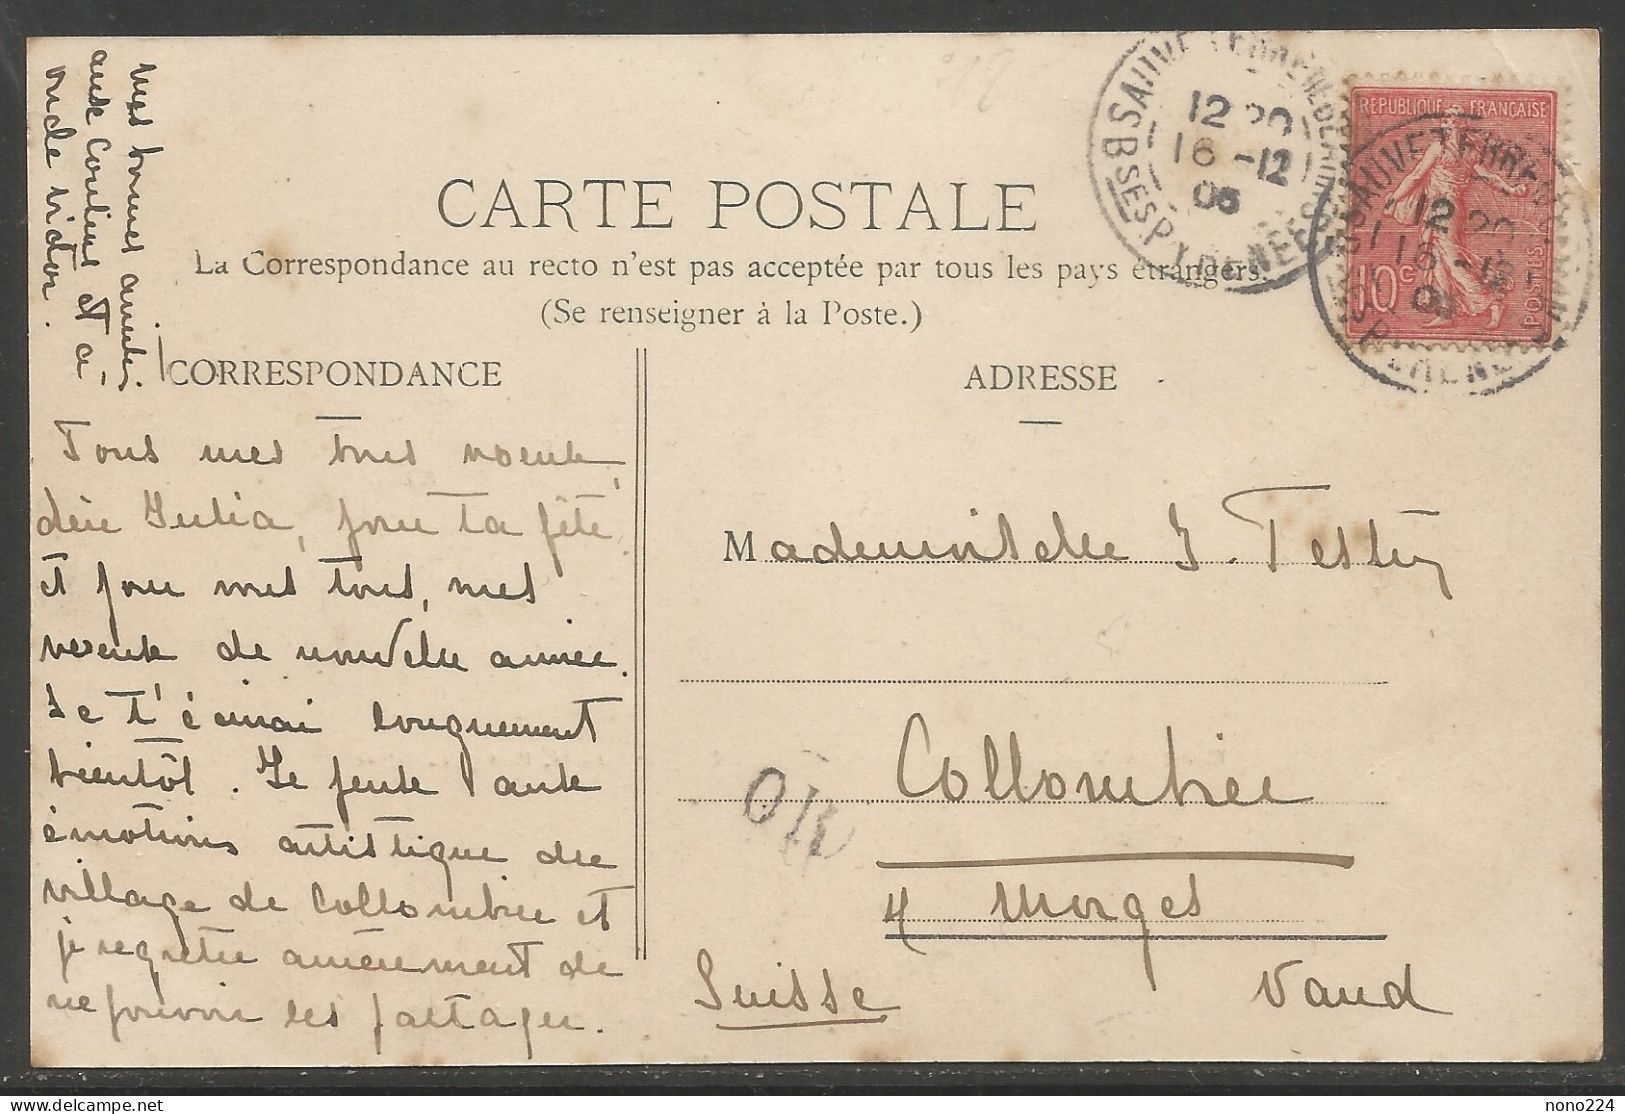 CARTE POSTALE
La Correspondance au recto n'est pas acceptée par tous les pays étrangers.
(Se renseigner à la Poste.)
CORRESPONDANCE
ADRESSE
Tous mes bons voeux,
chère Julia, pour ta fête,
et pour vous tous, mes
voeux de nouvelle année.
Je t'écrirai longuement
bientôt. Je pense aux
émotions artistiques du
village de Collombier et
je regrette amèrement de
ne pouvoir les partager.
mes bonnes amitiés
aux Cousines et à
oncle Victor.
Mademoiselle J. Testuz
Collombier
s/ Morges
Suisse Vaud
REPUBLIQUE FRANÇAISE
10c
POSTES
SAUVETERRE-DE-BEARN
BSES PYRENEES
12 20
16 -12
05
SAUVETERRE
12 20
16 -12
OR
nono224